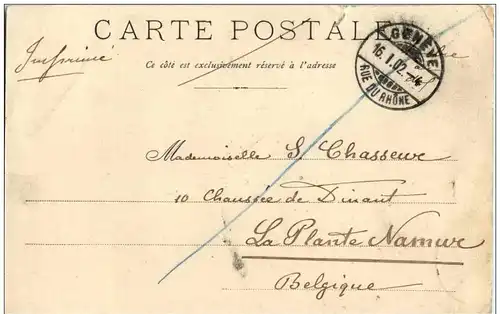 CARTE POSTALE
Imprimé
Ce côté est exclusivement réservé à l'adresse
GENÈVE
16. I. 02. - 4
RUE DU RHÔNE
Mademoiselle S. Chasseur
10 Chaussée de Dinant
La Plante Namur
Belgique